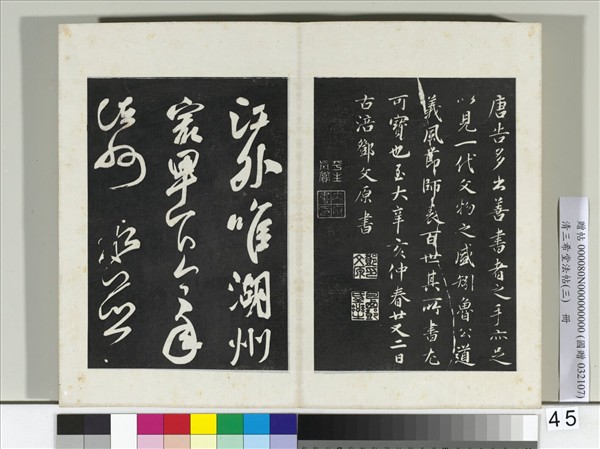 唐告多出善書者之手亦足
以見一代文物之盛矧魯公道
義風節師表百世其所書尤
可寶也至大辛亥仲春廿又二日
古涪鄧文原書
江外唯湖州
宻卑今年
法物
贈帖 000080N000000000 (國贈 032107)
清三希堂法帖(三) 冊
45